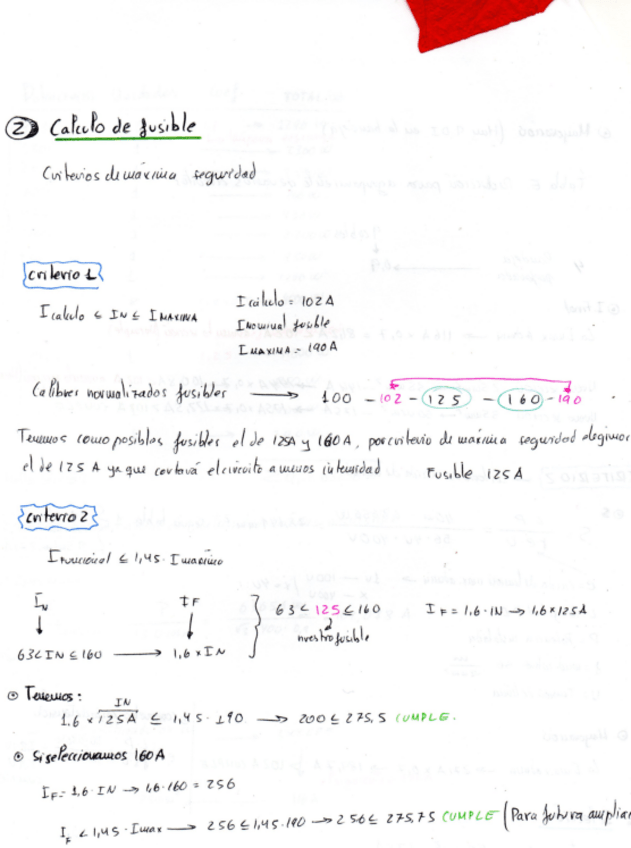 ② Calculo de fusible
Criterios de máxima seguridad
criterio 1
I calculo ≤ IN ≤ I MAXIMA
I cálculo = 102 A
I nominal fusible
I MAXIMA = 190 A
Calibres normalizados fusibles → 100 - 102 - 125 - 160 - 190
Tenemos como posibles fusibles el de 125A y 160 A, por criterio de máxima seguridad elegimos
el de 125 A ya que cortará el circuito a menos intensidad
Fusible 125 A
criterio 2
I funcional ≤ 1,45 · I maximo
IN IF
↓ ↓
63 < IN ≤ 160 → 1,6 x IN
63 < 125 ≤ 160
nuestro fusible
IF = 1,6 · IN → 1,6 x 125A
Tenemos:
IN
1.6 x 125A ≤ 1,45 · 190 → 200 ≤ 275,5 CUMPLE.
Si seleccionamos 160 A
IF = 1,6 · IN → 1,6 · 160 = 256
IF < 1,45 · Imax → 256 ≤ 1,45 · 190 → 256 ≤ 275,75 CUMPLE (Para futura ampliar